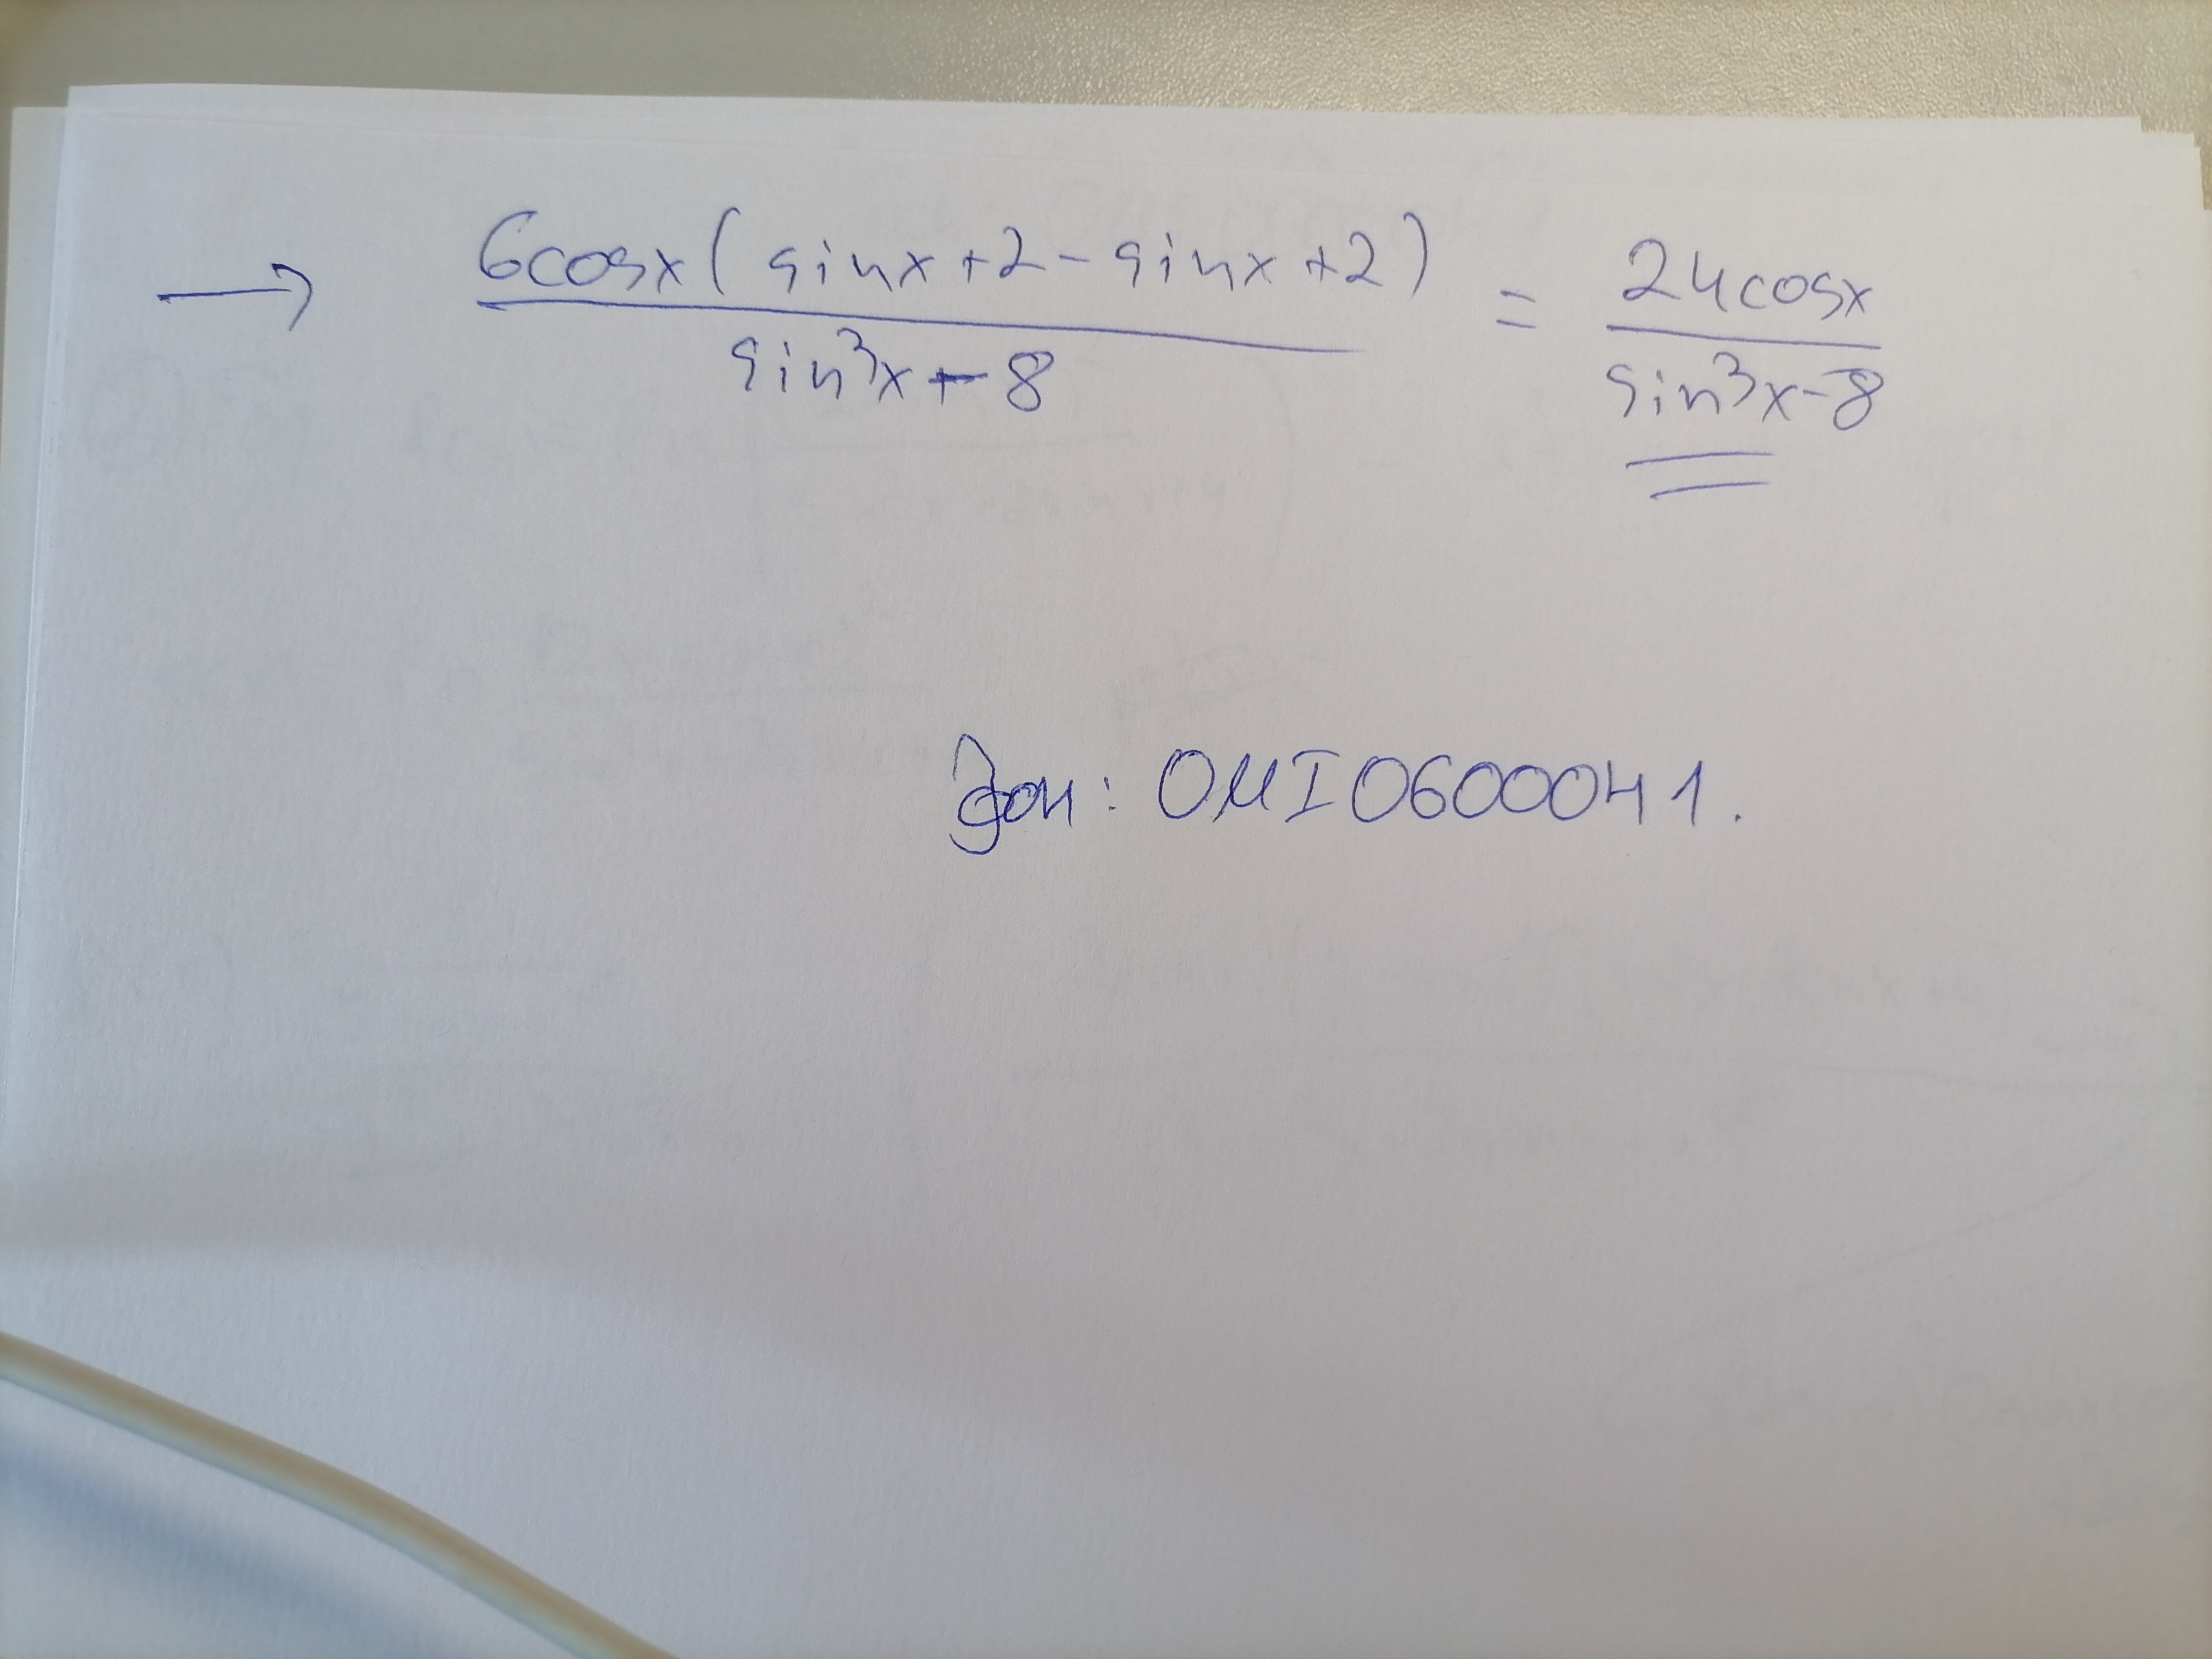 → 6cosx(sinx+2-sinx+2) / sin³x-8 = 24cosx / sin³x-8
фон: ОМІ0600041.